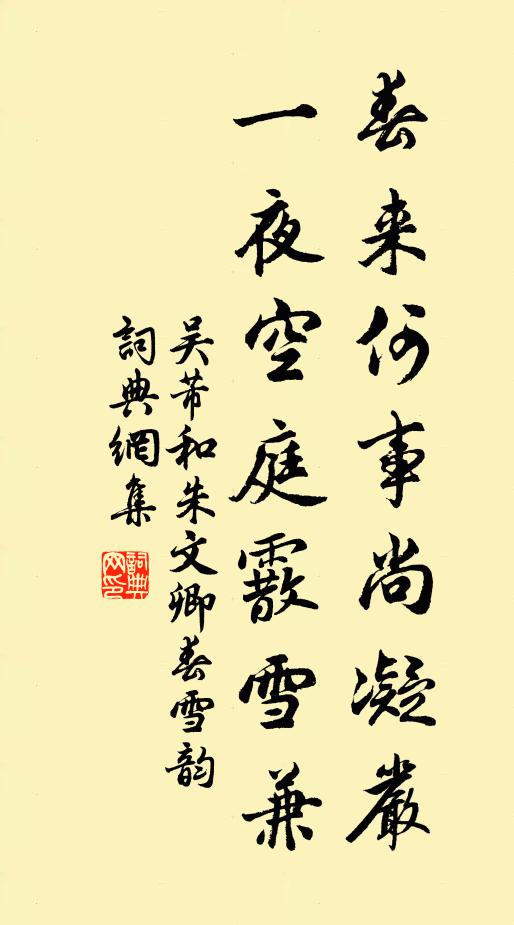 春来何事尚凝嚴
一夜空庭霰雪兼
吴芾和朱文卿春雪韵
詞典網集
詞典网印